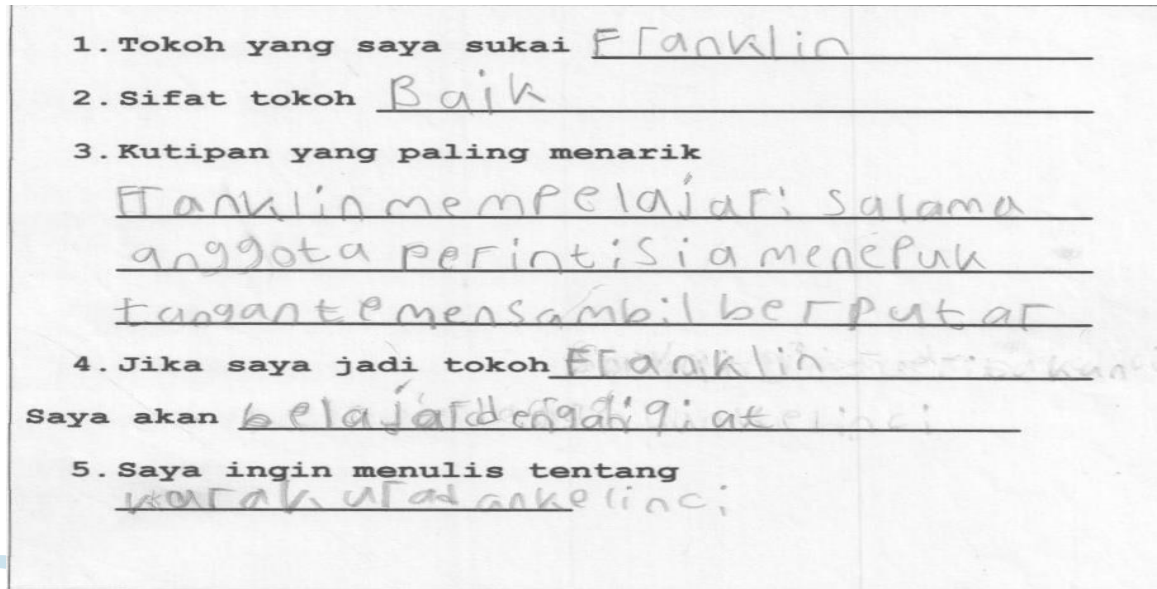 1. Tokoh yang saya sukai Franklin
2. Sifat tokoh Baik
3. Kutipan yang paling menarik
Franklin mempelajari salama
anggota perintis ia menepuk
tangan temen sambil berputar
4. Jika saya jadi tokoh Franklin
Saya akan belajar dengan giat
5. Saya ingin menulis tentang
kurak ura dan kelinci